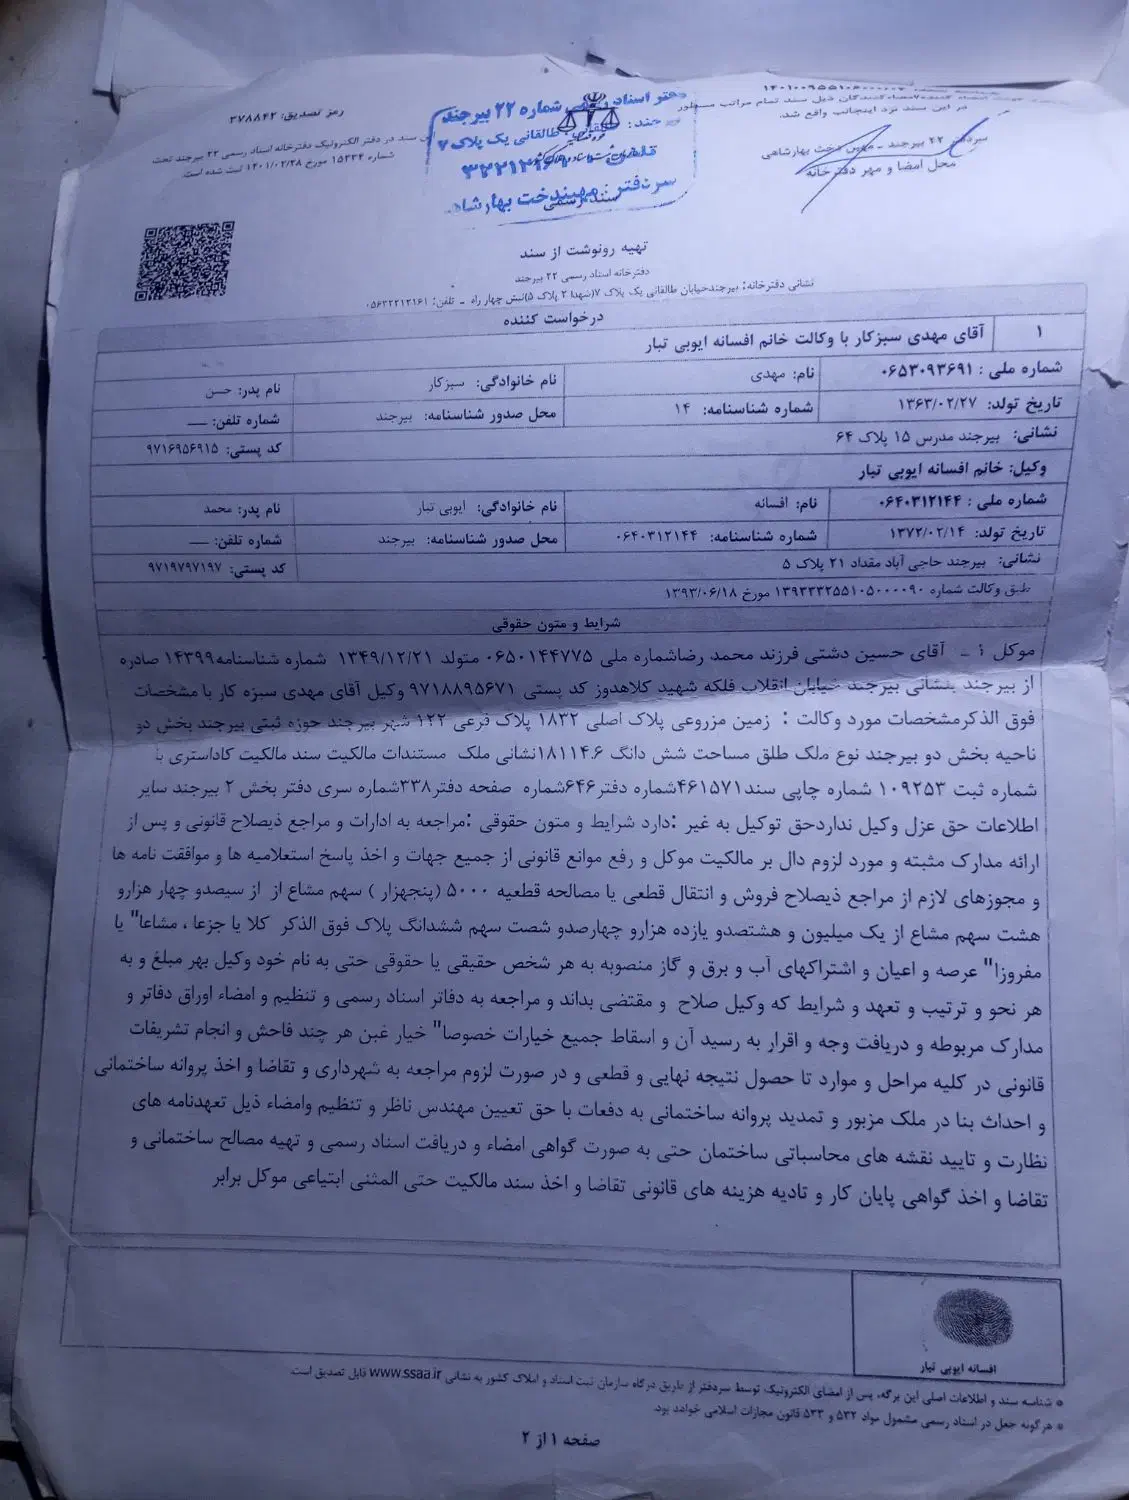 ۱۴۰۱۰۰۹۵۵۱۰۶۰۰۰۰۰۳
ذیل سند تمام مراتب مسطور
در این سند نزد اینجانب واقع شد.
سردفتر ۲۲ بیرجند - مهین دخت بهارشاهی
محل امضا و مهر دفترخانه
دفتر اسناد رسمی شماره ۲۲ بیرجند
طالقانی یک پلاک ۷
سردفتر: مهیندخت بهارشاهی
سند رسمی
رمز تصدیق: ۳۷۸۸۴۲
این سند در دفتر الکترونیک دفترخانه اسناد رسمی ۲۲ بیرجند تحت
شماره ۱۵۲۳۴ مورخ ۱۴۰۱/۰۲/۲۸ ثبت شده است.
تهیه رونوشت از سند
دفترخانه اسناد رسمی ۲۲ بیرجند
نشانی دفترخانه: بیرجندخیابان طالقانی یک پلاک ۷(شهدا ۲ پلاک ۵)نبش چهار راه - تلفن: ۰۵۶۳۲۲۱۲۱۶۱
درخواست کننده
۱ آقای مهدی سبزکار با وکالت خانم افسانه ایوبی تبار
شماره ملی : ۰۶۵۳۰۹۳۶۹۱ نام: مهدی نام خانوادگی: سبزکار نام پدر: حسن
تاریخ تولد: ۱۳۶۳/۰۲/۲۷ شماره شناسنامه: ۱۴ محل صدور شناسنامه: بیرجند شماره تلفن: ــــ
نشانی: بیرجند مدرس ۱۵ پلاک ۶۴ کد پستی: ۹۷۱۶۹۵۶۹۱۵
وکیل: خانم افسانه ایوبی تبار
شماره ملی : ۰۶۴۰۳۱۲۱۴۴ نام: افسانه نام خانوادگی: ایوبی تبار نام پدر: محمد
تاریخ تولد: ۱۳۷۲/۰۲/۱۴ شماره شناسنامه: ۰۶۴۰۳۱۲۱۴۴ محل صدور شناسنامه: بیرجند شماره تلفن: ــــ
نشانی: بیرجند حاجی آباد مقداد ۲۱ پلاک ۵ کد پستی: ۹۷۱۹۷۹۷۱۹۷
طبق وکالت شماره ۱۳۹۳۳۳۲۵۵۱۰۵۰۰۰۰۹۰ مورخ ۱۳۹۳/۰۶/۱۸
شرایط و متون حقوقی
موکل ۱ - آقای حسین دشتی فرزند محمد رضاشماره ملی ۰۶۵۰۱۴۴۷۷۵ متولد ۱۳۴۹/۱۲/۲۱ شماره شناسنامه۱۴۳۹۹ صادره
از بیرجند بنشانی بیرجند خیابان انقلاب فلکه شهید کلاهدوز کد پستی ۹۷۱۸۸۹۵۶۷۱ وکیل آقای مهدی سبزه کار با مشخصات
فوق الذکرمشخصات مورد وکالت : زمین مزروعی پلاک اصلی ۱۸۳۲ پلاک فرعی ۱۲۲ شهر بیرجند حوزه ثبتی بیرجند بخش دو
ناحیه بخش دو بیرجند نوع ملک طلق مساحت شش دانگ ۱۸۱۱۴.۶نشانی ملک مستندات مالکیت سند مالکیت کاداستری با
شماره ثبت ۱۰۹۲۵۳ شماره چاپی سند۴۶۱۵۷۱شماره دفتر۶۴۶شماره صفحه دفتر۳۳۸شماره سری دفتر بخش ۲ بیرجند سایر
اطلاعات حق عزل وکیل نداردحق توکیل به غیر :دارد شرایط و متون حقوقی :مراجعه به ادارات و مراجع ذیصلاح قانونی و پس از
ارائه مدارک مثبته و مورد لزوم دال بر مالکیت موکل و رفع موانع قانونی از جمیع جهات و اخذ پاسخ استعلامیه ها و موافقت نامه ها
و مجوزهای لازم از مراجع ذیصلاح فروش و انتقال قطعی یا مصالحه قطعیه ۵۰۰۰ (پنجهزار ) سهم مشاع از از سیصدو چهار هزارو
هشت سهم مشاع از یک میلیون و هشتصدو یازده هزارو چهارصدو شصت سهم ششدانگ پلاک فوق الذکر کلا یا جزعا ، مشاعا" یا
مفروزا" عرصه و اعیان و اشتراکهای آب و برق و گاز منصوبه به هر شخص حقیقی یا حقوقی حتی به نام خود وکیل بهر مبلغ و به
هر نحو و ترتیب و تعهد و شرایط که وکیل صلاح و مقتضی بداند و مراجعه به دفاتر اسناد رسمی و تنظیم و امضاء اوراق دفاتر و
مدارک مربوطه و دریافت وجه و اقرار به رسید آن و اسقاط جمیع خیارات خصوصا" خیار غبن هر چند فاحش و انجام تشریفات
قانونی در کلیه مراحل و موارد تا حصول نتیجه نهایی و قطعی و در صورت لزوم مراجعه به شهرداری و تقاضا و اخذ پروانه ساختمانی
و احداث بنا در ملک مزبور و تمدید پروانه ساختمانی به دفعات با حق تعیین مهندس ناظر و تنظیم وامضاء ذیل تعهدنامه های
نظارت و تایید نقشه های محاسباتی ساختمان حتی به صورت گواهی امضاء و دریافت اسناد رسمی و تهیه مصالح ساختمانی و
تقاضا و اخذ گواهی پایان کار و تادیه هزینه های قانونی تقاضا و اخذ سند مالکیت حتی المثنی ابتیاعی موکل برابر
افسانه ایوبی تبار
* شناسه سند و اطلاعات اصلی این برگه، پس از امضای الکترونیک توسط سردفتر از طریق درگاه سازمان ثبت اسناد و املاک کشور به نشانی www.ssaa.ir قابل تصدیق است.
* هرگونه جعل در اسناد رسمی مشمول مواد ۵۳۲ و ۵۳۳ قانون مجازات اسلامی خواهد بود.
صفحه ۱ از ۲